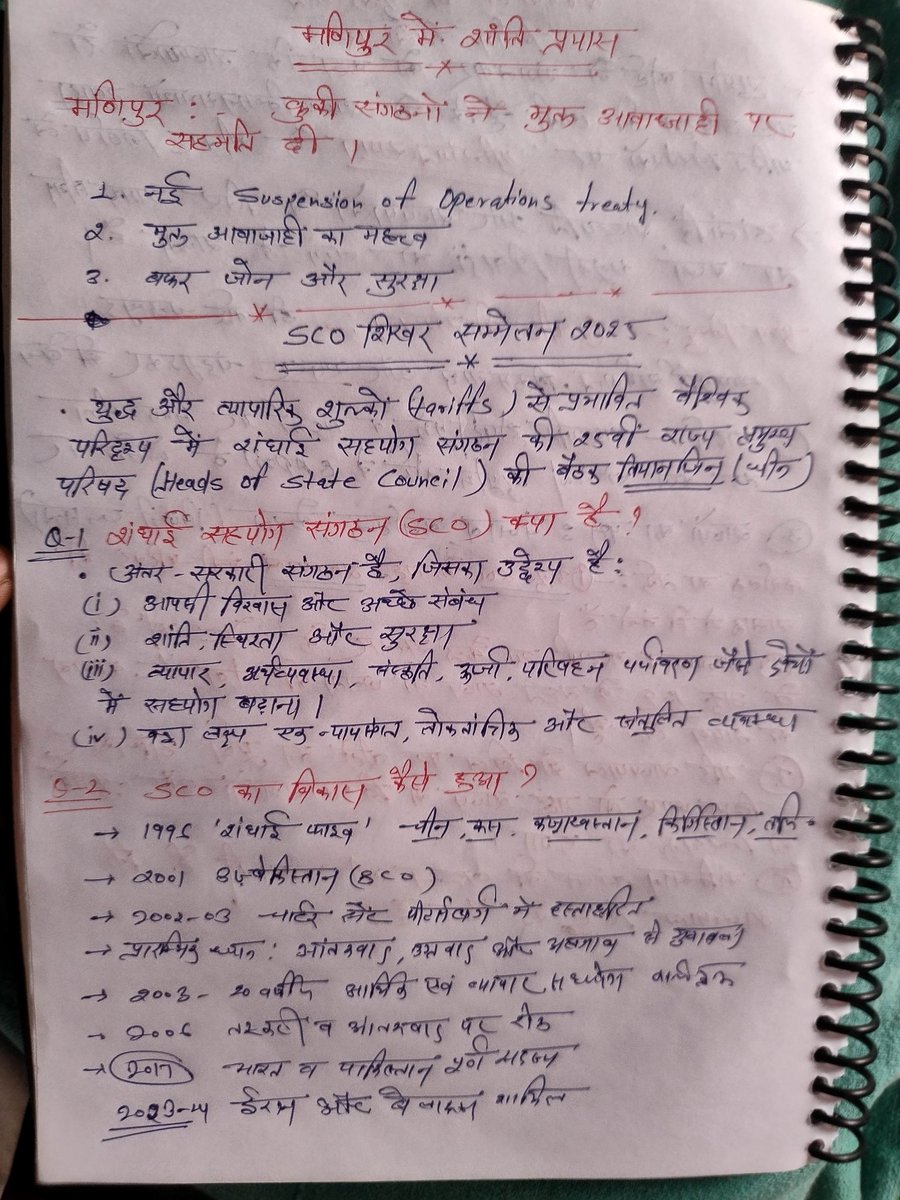 मणिपुर में शांति प्रयास
मणिपुर : कुकी संगठनों ने मुक्त आवाजाही पर
सहमति दी ।
1. नई Suspension of Operations treaty.
2. मुक्त आवाजाही का महत्व
3. बफर जोन और सुरक्षा
SCO शिखर सम्मेलन 2025
• युद्ध और व्यापारिक शुल्कों (tariffs) से प्रभावित वैश्विक
परिदृश्य में शंघाई सहयोग संगठन की 25वीं राज्य प्रमुख
परिषद (Heads of State Council) की बैठक तियानजिन (चीन)
Q-1 शंघाई सहयोग संगठन (SCO) क्या है ?
• अंतर-सरकारी संगठन है, जिसका उद्देश्य है :
(i) आपसी विश्वास और अच्छे संबंध
(ii) शांति, स्थिरता और सुरक्षा
(iii) व्यापार, अर्थव्यवस्था, संस्कृति, ऊर्जा, परिवहन पर्यावरण जैसे क्षेत्रों
में सहयोग बढ़ाना ।
(iv) लक्ष्य एक न्यायसंगत, लोकतांत्रिक और संतुलित व्यवस्था
Q-2 SCO का विकास कैसे हुआ ?
→ 1996 'शंघाई फाइव' चीन, रूस, कजाखस्तान, किर्गिस्तान, तजि॰
→ 2001 उज्बेकिस्तान (SCO)
→ 2002-03 चार्टर सेंट पीटर्सबर्ग में हस्ताक्षरित
→ प्रारम्भिक ध्यान : आतंकवाद, उग्रवाद और अलगाव से मुकाबला
→ 2003 - 20 वर्षीय आर्थिक एवं व्यापार सहयोग कार्यक्रम
→ 2006 तस्करी व आतंकवाद पर रोक
→ 2017 भारत व पाकिस्तान पूर्ण सदस्य
2023-24 ईरान और बेलारूस शामिल